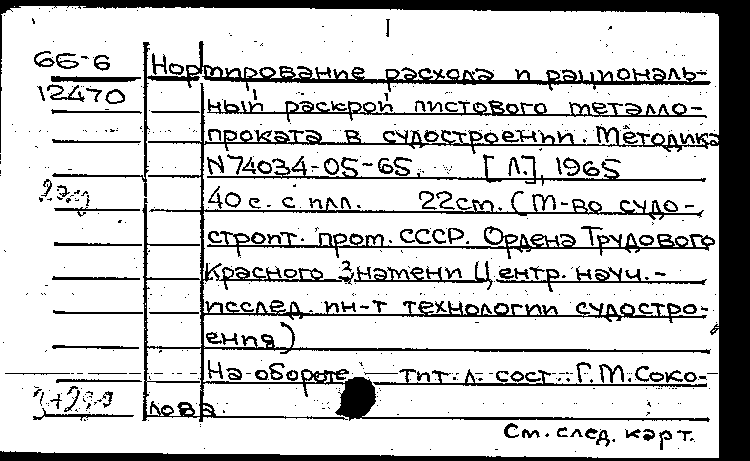 I
66-6 Нормирование расхода и рациональ-
12470 ный раскрой листового металло-
проката в судостроении. Методика
N74034-05-65. [Л.], 1965
40 с. с илл. 22см. (М-во судо-
строит. пром. СССР. Ордена Трудового
Красного Знамени Центр. науч.-
исслед. ин-т технологии судостро-
ения)
На обороте тит. л. сост.: Г.М. Соко-
лова.
См. след. карт.